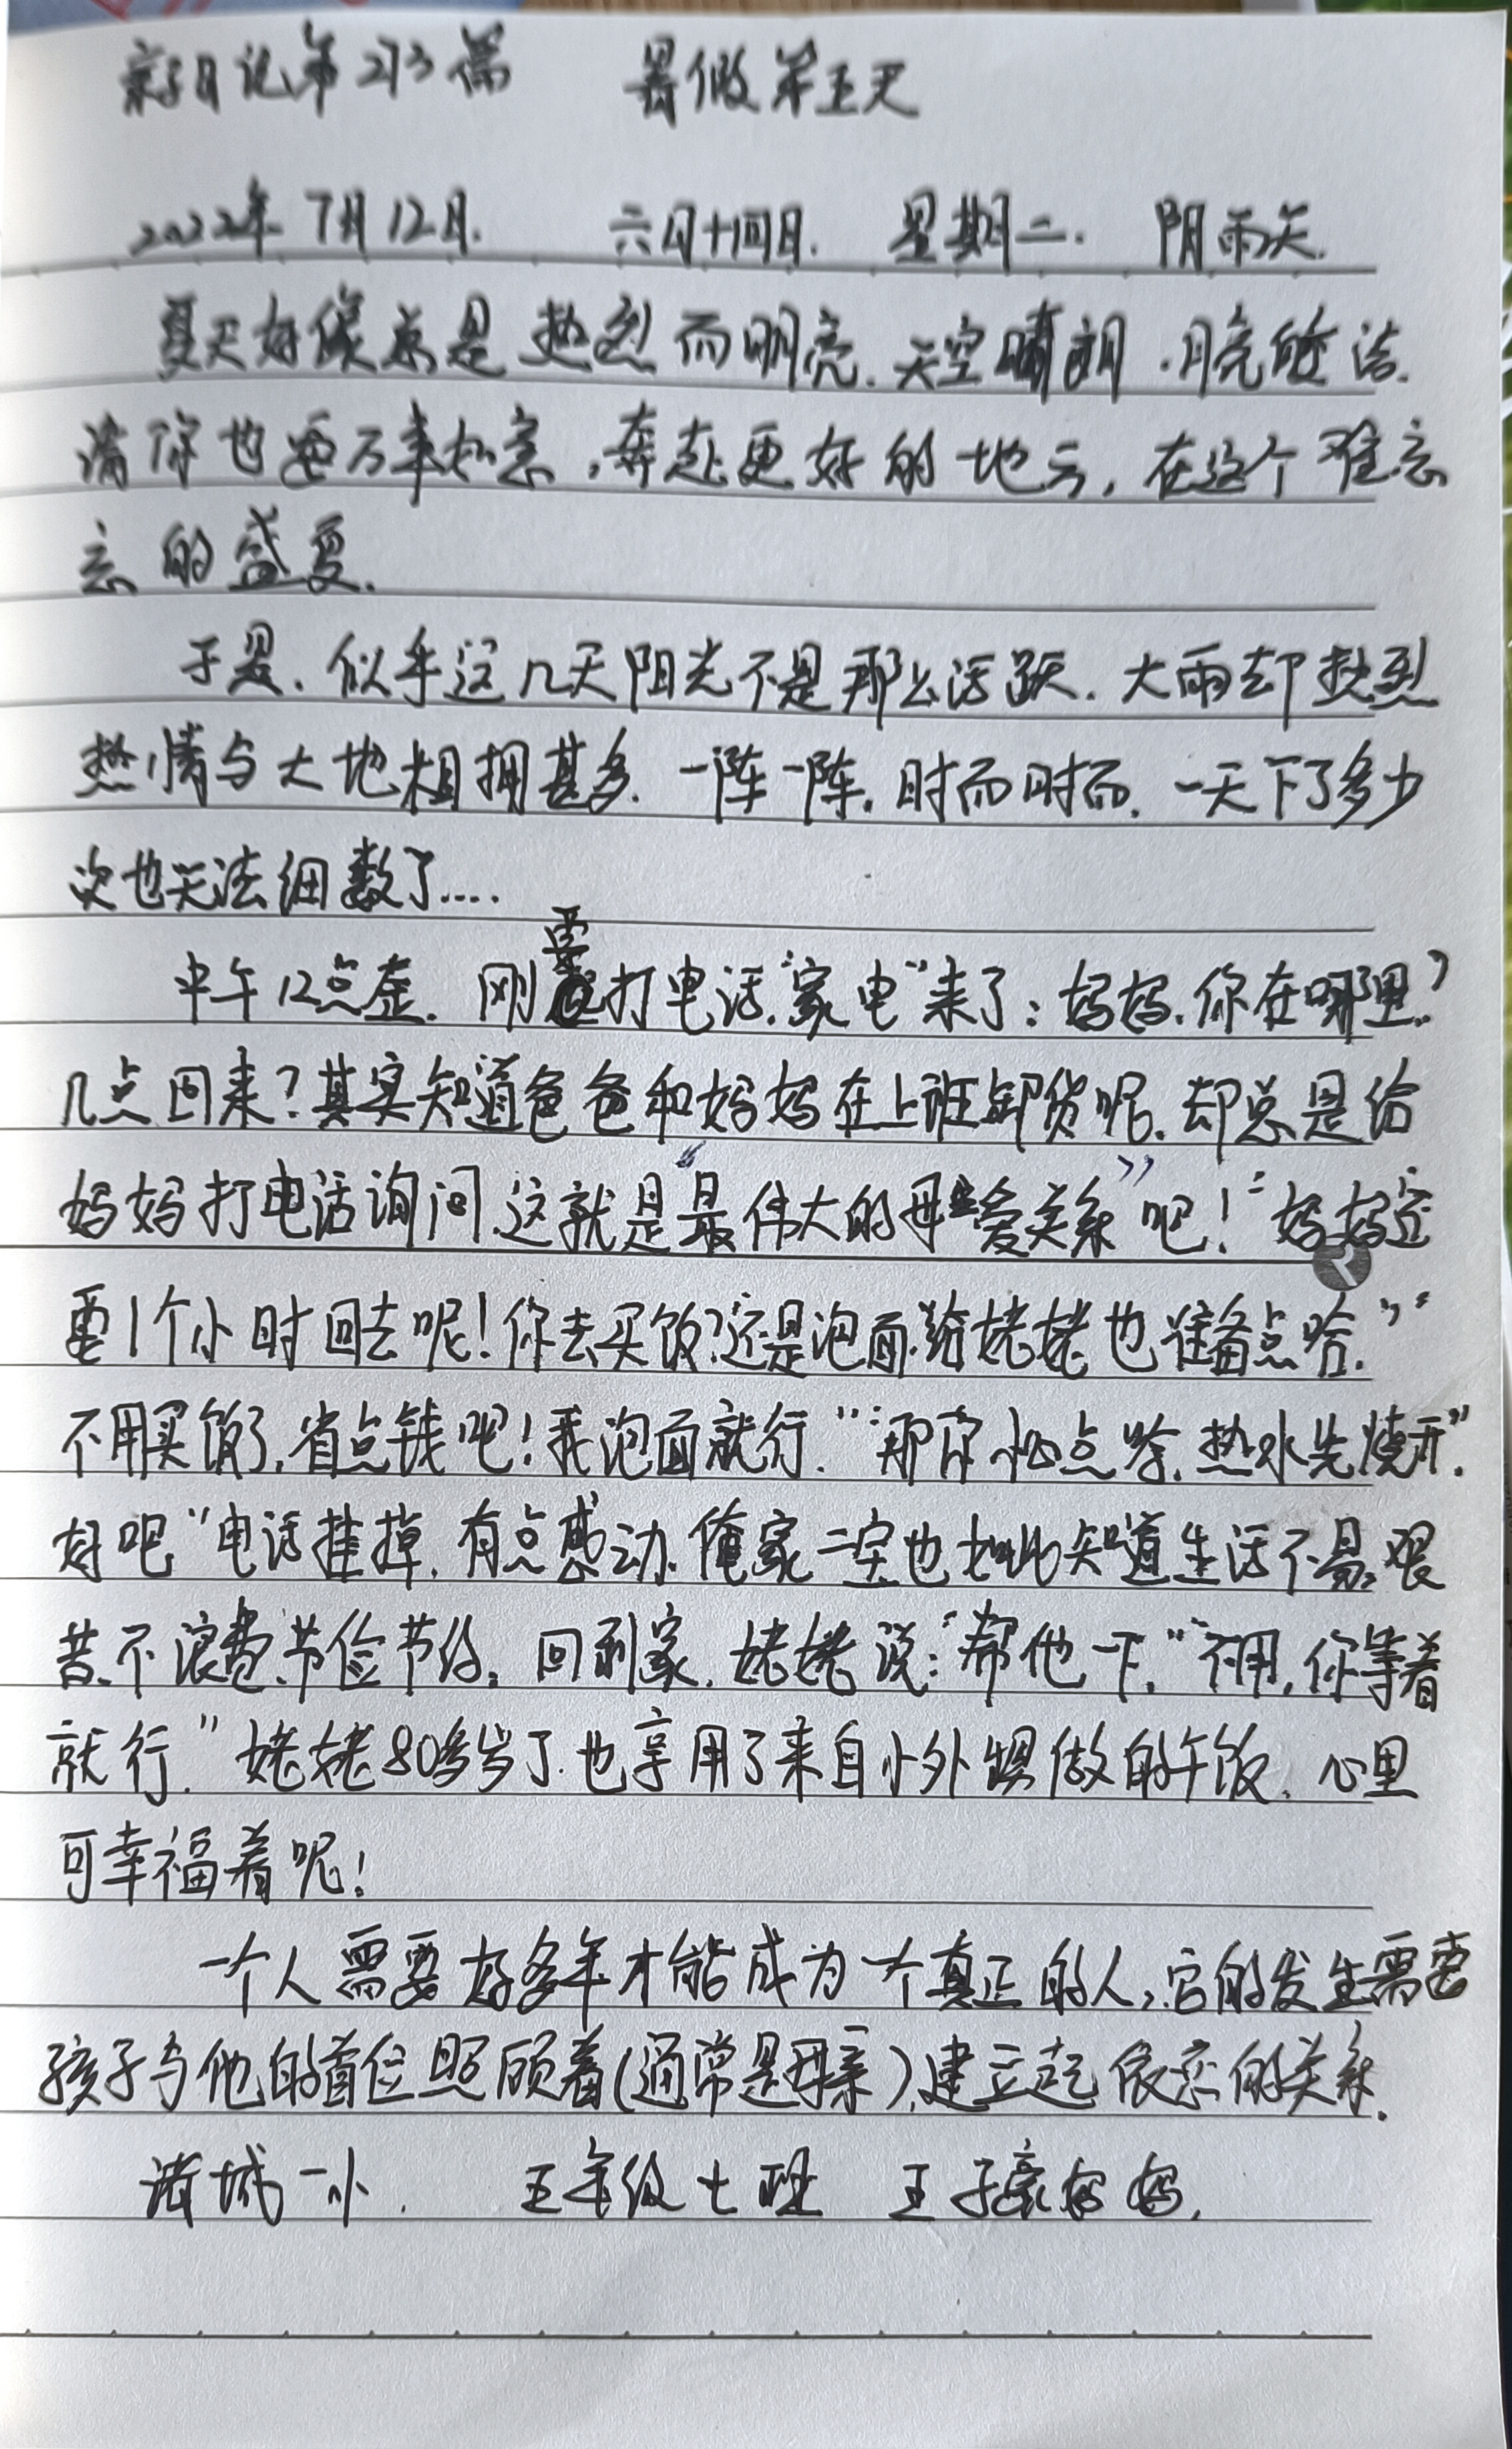 亲子日记第213篇 暑假第五天
2022年7月12日. 六月十四日. 星期二. 阴雨天.
夏天好像总是热烈而明亮.天空晴朗.月亮皎洁.
请你也要万事如意,奔赴更好的地方,在这个难忘
忘的盛夏.
于是.似乎这几天阳光不是那么活跃.大雨却热烈
热情与大地相拥甚多.一阵一阵.时而时而.一天下了多少
次也无法细数了....
中午12点整.刚要打电话.“家电”来了:妈妈.你在哪里?
几点回来?其实知道爸爸和妈妈在上班卸货呢.却总是给
妈妈打电话询问.这就是“最伟大的母爱关系”吧!“妈妈还
要1个小时回去呢!你去买饭?还是泡面.给姥姥也准备点哈.”“
不用买饭了,省点钱吧!我泡面就行.”“那你小心点哈.热水先烧开”.
好吧”电话挂掉.有点感动.俺家二宝也如此知道生活不易.艰
苦.不浪费.节俭节约。回到家.姥姥说:“帮他一下.”“不用,你等着
就行.”姥姥80多岁了.也享用了来自小外甥做的午饭.心里
可幸福着呢!
一个人需要好多年才能成为一个真正的人,它的发生需要
孩子与他的首位照顾着(通常是母亲),建立起依恋的关系.
诸城一小. 五年级七班 王子豪妈妈.